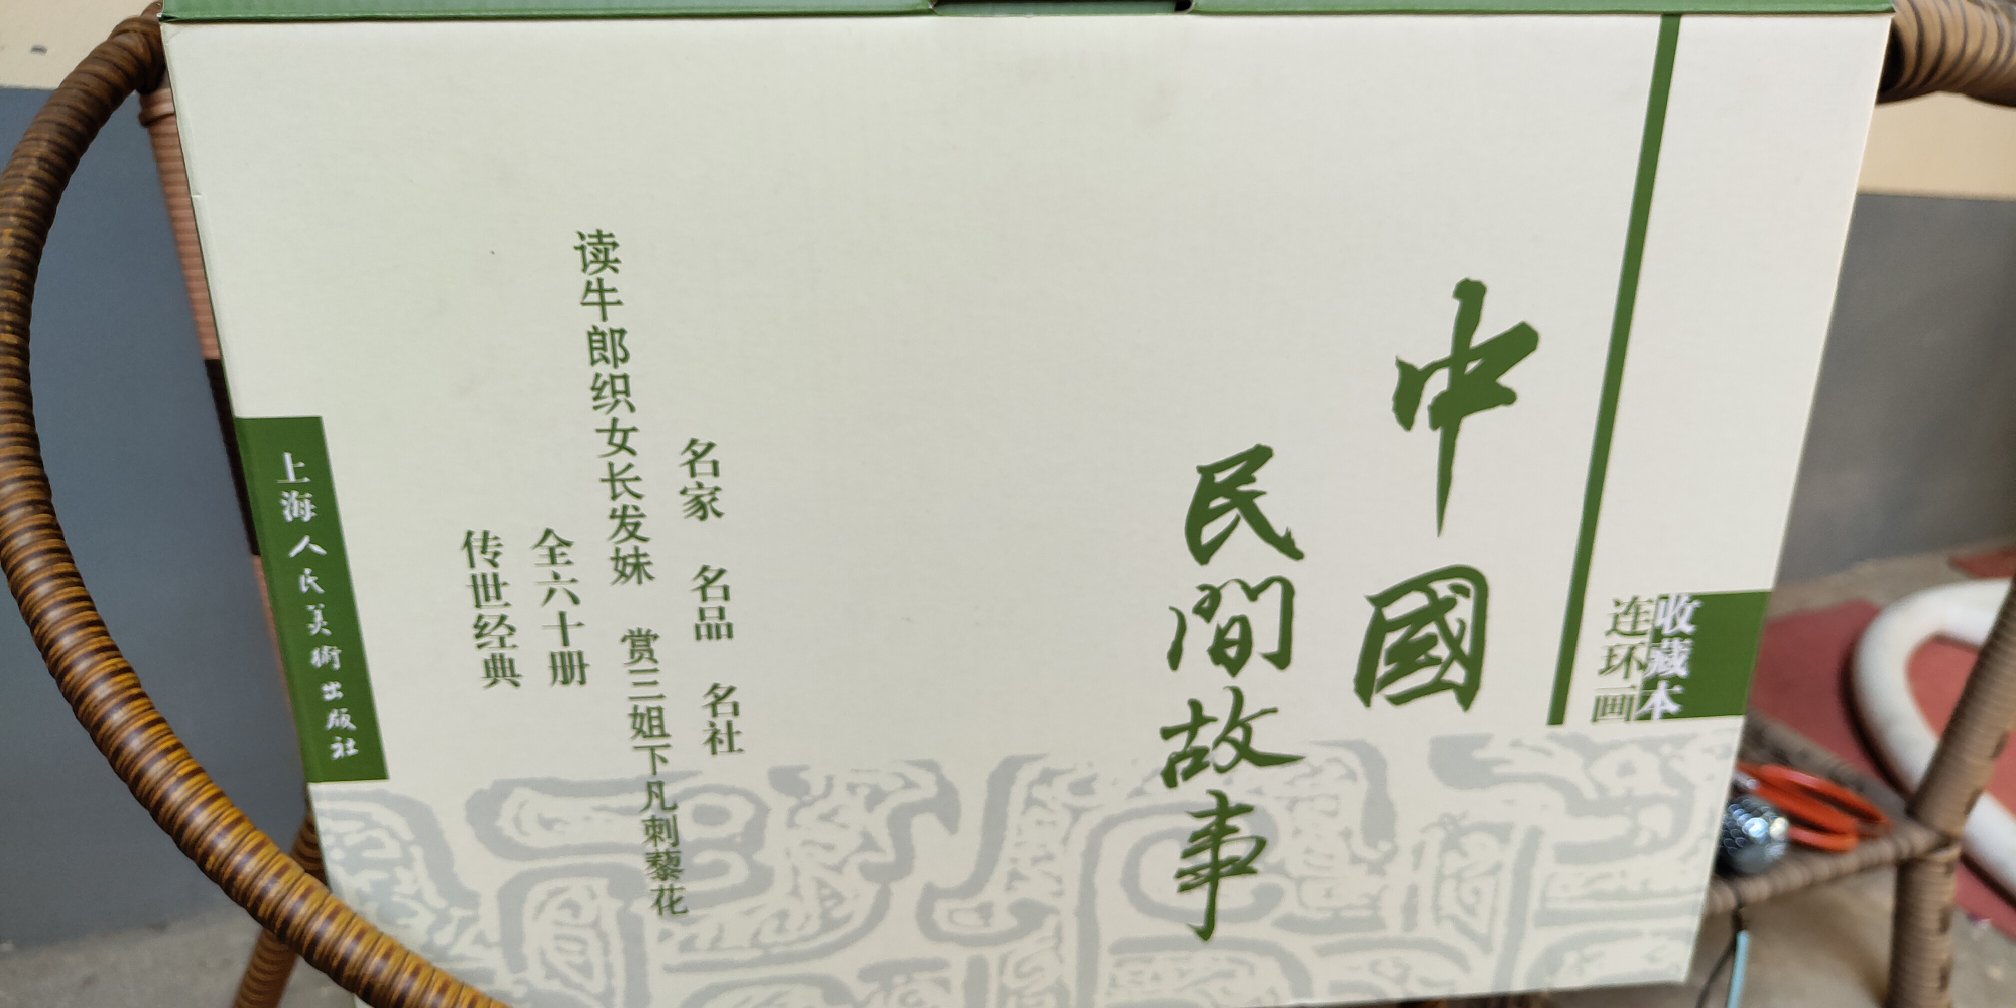 收藏本
连环画
中國
民間故事
名家 名品 名社
读牛郎织女长发妹 赏三姐下凡刺藜花
全六十册
传世经典
上海人民美術出版社